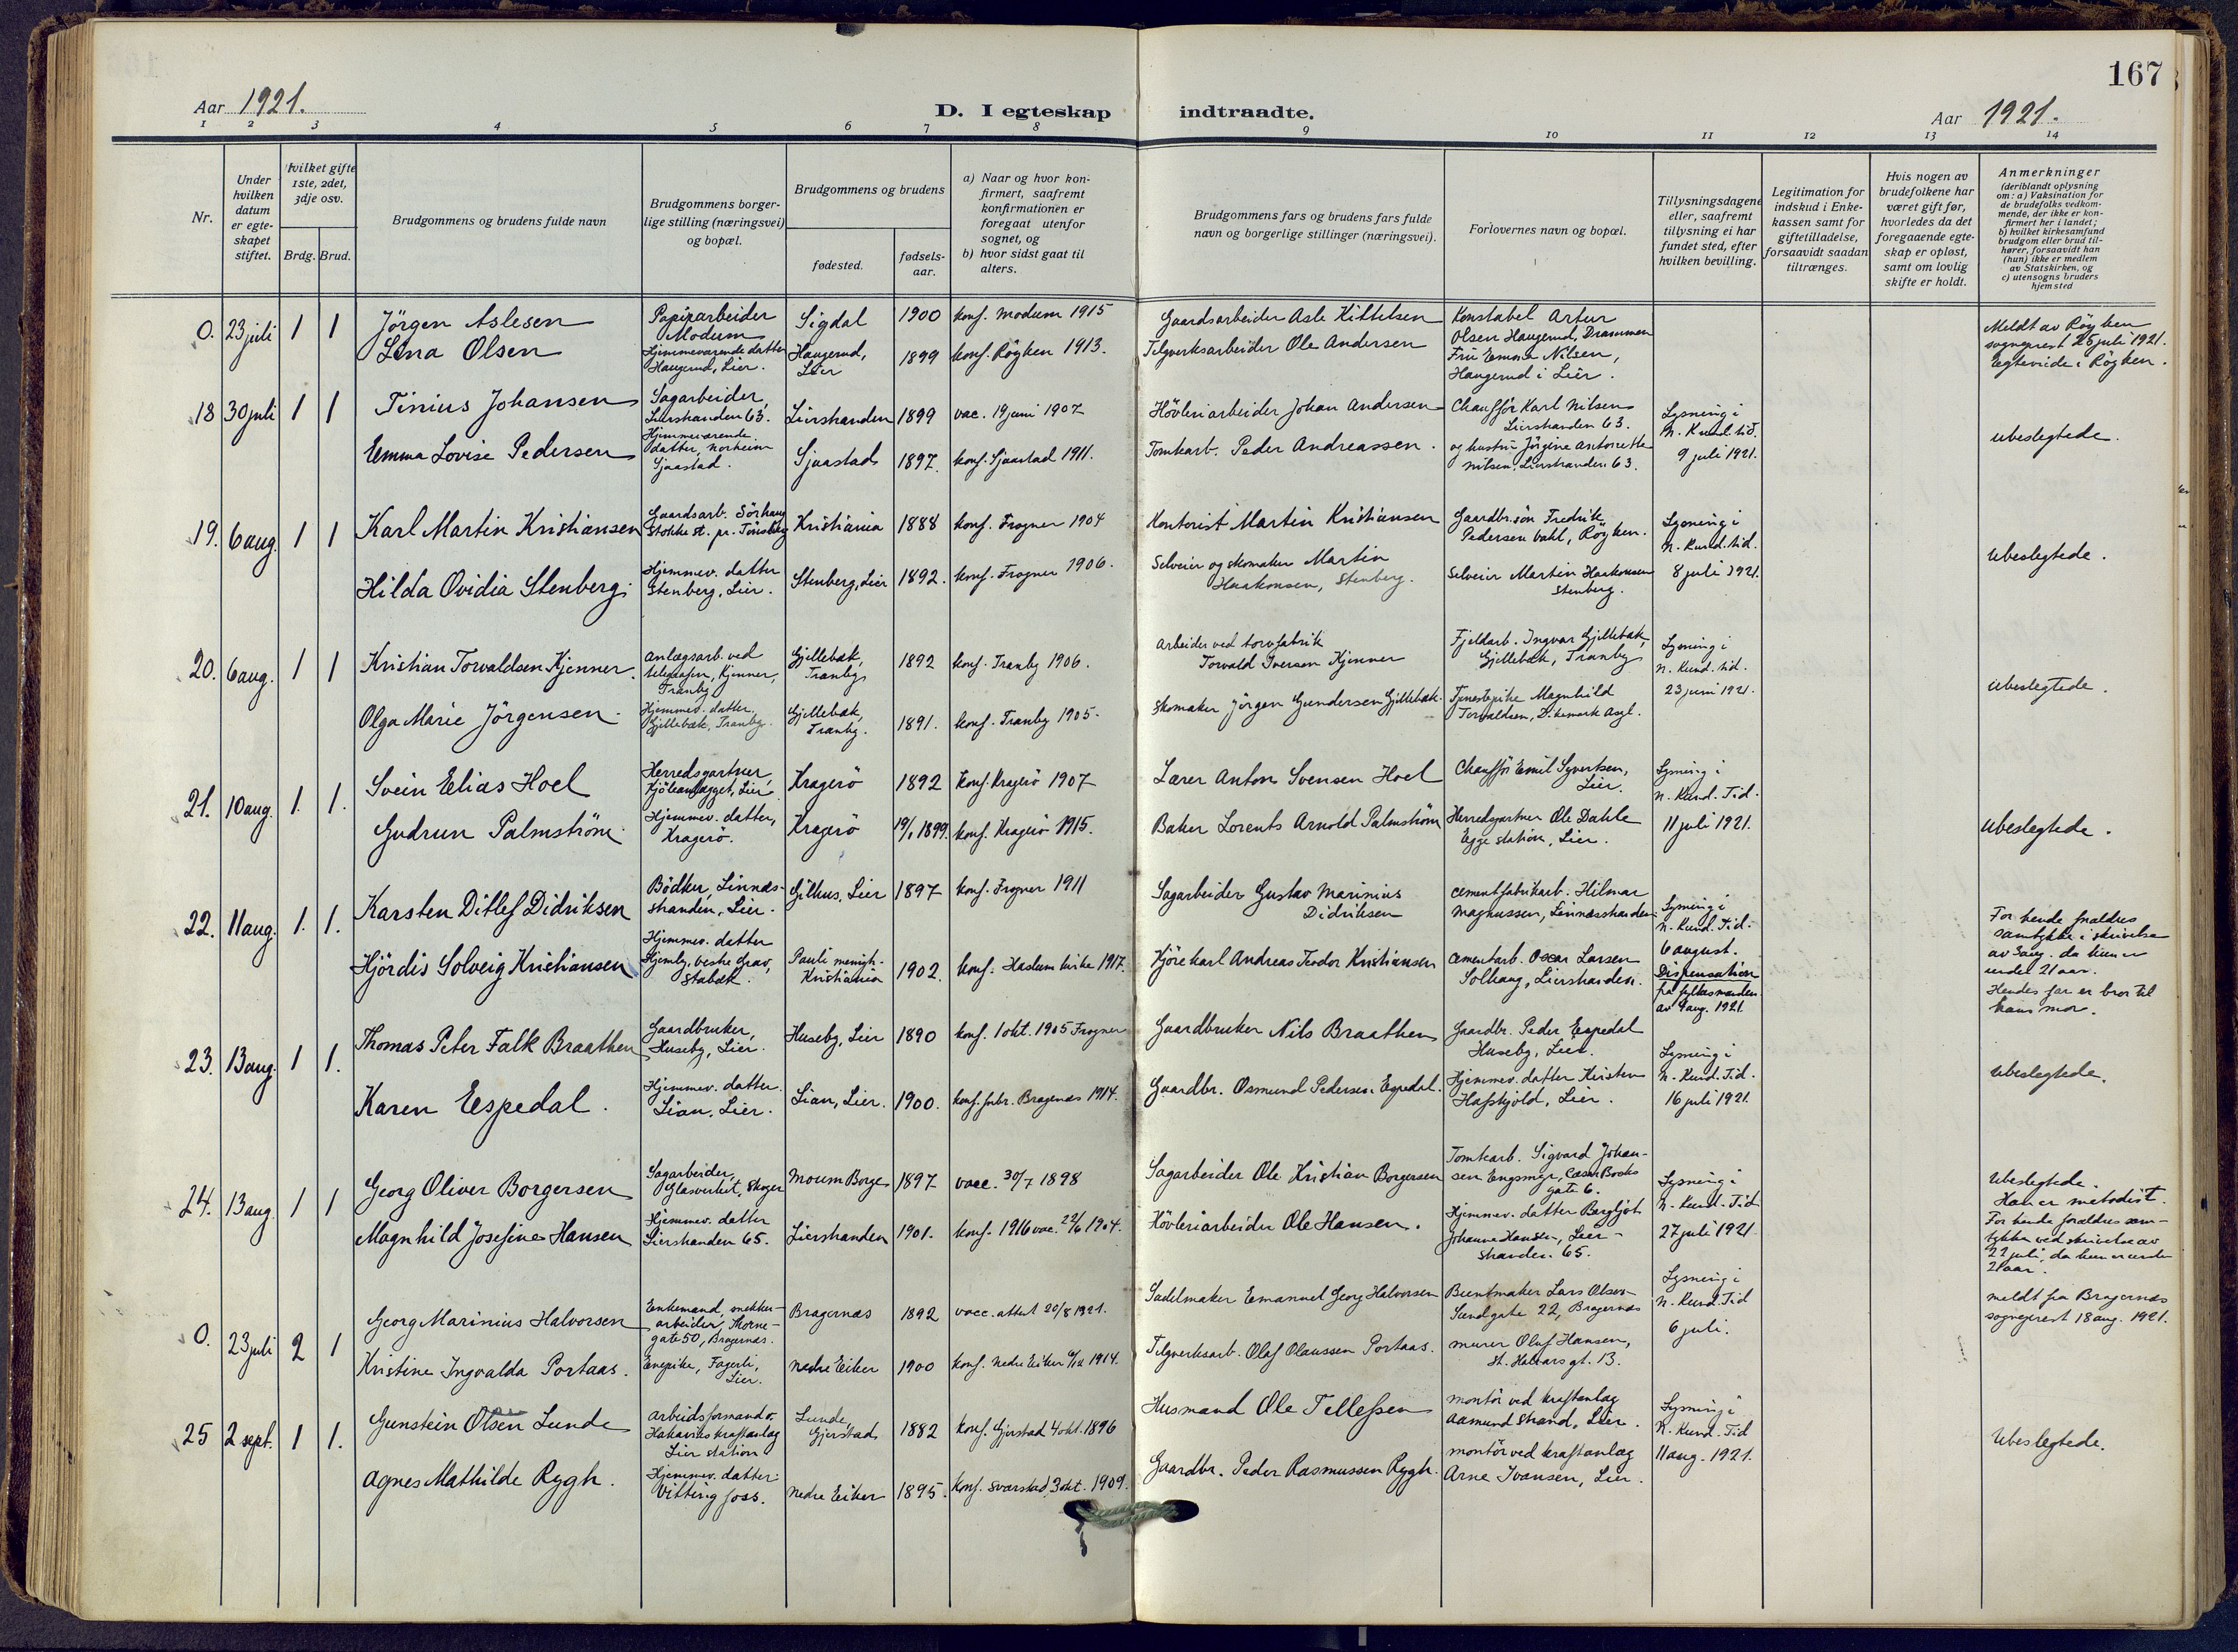 167
Aar 1921.
D. I egteskap indtraadte.
Aar 1921.
1 2 3 4 5 6 7 8 9 10 11 12 13 14
Nr.
Under hvilken datum er egteskapet stiftet.
Hvilket gifte 1ste, 2det, 3dje osv.
Brdg. Brud.
Brudgommens og brudens fulde navn
Brudgommens borgerlige stilling (næringsvei) og bopæl.
Brudgommens og brudens
fødested.
fødselsaar.
a) Naar og hvor konfirmert, saafremt konfirmationen er foregaat utenfor sognet, og
b) hvor sidst gaat til alters.
Brudgommens fars og brudens fars fulde navn og borgerlige stillinger (næringsvei).
Forlovernes navn og bopæl.
Tillysningsdagene eller, saafremt tillysning ei har fundet sted, efter hvilken bevilling.
Legitimation for indskud i Enkekassen samt for giftetilladelse, forsaavidt saadan tiltrænges.
Hvis nogen av brudefolkene har været gift før, hvorledes da det foregaaende egteskap er opløst, samt om lovlig skifte er holdt.
Anmerkninger
(deriblandt oplysning om: a) Vaksination for de brudefolks vedkommende, der ikke er konfirmert her i landet; b) hvilket kirkesamfund brudgom eller brud tilhører, forsaavidt han (hun) ikke er medlem av Statskirken, og c) utensogns bruders hjemsted
0. 23 juli 1 1
Jörgen Aslesen
Papirarbeider Modum
Sigdal
1900
konf. Modum 1915
Gaardsarbeider Asle Kittelsen
Konstabel Artur Olsen Haugerud, Drammen
Lina Olsen
Hjemmeværende datter Haugerud, Lier.
Haugerud, Lier
1899
konf. Röyken 1913.
Telgverksarbeider Ole Andersen
Fru Emma Nilsen, Haugerud i Lier.
Meldt av Röyken sogneprest 25 juli 1921. Egtevride i Röyken.
18 30 juli 1 1
Tinius Johansen
Sagarbeider, Lierstranden 63.
Lierstranden
1899
vac. 19 juni 1907
Hövleriarbeider Johan Andersen
Chaufför Karl Nilsen Lierstranden 63.
Emma Lovise Pedersen
Hjemmeværende datter, Norheim Sjaastad.
Sjaastad
1897.
konf. Sjaastad 1911.
Tomtearb. Peder Andreassen.
og hustru Jörgine Antonette Nilsen, Lierstranden 63.
Lysning i N. Kund. tid. 9 juli 1921.
ubeslegtede.
19. 6 aug. 1 1
Karl Martin Kristiansen
Gaardsarb. Sörhaug Stokke st. pr. Tönsberg
Kristiania
1888
konf. Frogner 1904
Kontorist Martin Kristiansen
Gaardbr.sön Fredrik Pedersen Dahl, Röyken.
Hilda Ovidia Stenberg.
Hjemmev. datter Stenberg, Lier.
Stenberg, Lier
1892.
konf. Frogner 1906.
Selveier og skomaker Martin Haakonsen, Stenberg.
Selveier Martin Haakonsen Stenberg.
Lysning i N. Kund. tid. 8 juli 1921.
Ubeslegtede.
20. 6 aug. 1 1
Kristian Torvaldsen Kjenner.
Anlægsarb. ved telegrafen, Kjenner, Tranby
Gjellebæk, Tranby
1892
konf. Tranby 1906.
Arbeider ved torvfabrik Torvald Iversen Kjenner
Fjeldarb. Ingvar Gjellebæk, Gjellebæk, Tranby
Olga Marie Jörgensen.
Hjemmev. datter, Gjellebæk, Tranby.
Gjellebæk, Tranby.
1891.
konf. Tranby 1905.
Skomaker Jörgen Gundersen Gjellebæk.
Tjenestepike Magnhild Torvaldsen, Dikemark Asyl.
Lysning i N. Kund. tid. 23 juni 1921.
Ubeslegtede.
21. 10 aug. 1. 1.
Svein Elias Hoel
Herredsgartner, Lier
Kragerö
1892
Konf. Kragerö 1907
Lærer Anton Svensen Hoel
Chaufför Emil Syvertsen, Lier.
Gudrun Palmström.
Hjemmev. datter, Kragerö.
Kragerö
19/1 1899.
konf. Kragerö 1915.
Baker Lorents Arnold Palmström
Herredsgartner Ole Dahle Egge station, Lier.
Lysning i N. Kund. Tid. 11 juli 1921.
Ubeslegtede.
22. 11 aug. 1. 1.
Karsten Ditlef Didriksen
Bödker, Linnæsstranden, Lier.
Gilhus, Lier
1897
konf. Frogner 1911
Sagarbeider Gustav Marinius Didriksen
Cementfabrikarb. Hilmar Magnussen, Linnæsstranden
Hjördis Solveig Kristiansen
Hjemmev. datter Hjemly, vestre Grav, Stabæk.
Pauli menigh. Kristiania
1902.
konf. Haslum kirke 1917.
Kjörekarl Andreas Teodor Kristiansen
Cementarb. Oscar Larsen Solhaug, Lierstranden.
Lysning i N. Kund. Tid. 6 august. Dispensation fra fylkesmanden av 9 aug. 1921.
For hende foraldres samtykke i skrivelse av 3 aug. da hun er under 21 aar. Hendes far er bror til hans mor.
23. 13 aug. 1 1.
Thomas Peter Falk Braathen
Gaardbruker, Huseby, Lier.
Huseby, Lier
1890
konf. 1 okt. 1905 Frogner
Gaardbruker Nils Braathen
Gaardbr. Peder Espedal Huseby, Lier.
Karen Espedal.
Hjemmev. datter. Lian, Lier.
Lian, Lier.
1900.
konf. Bragernæs 1914.
Gaardbr. Osmund Pedersen Espedal.
Hjemmev. datter Kirsten Hafskjold, Lier.
Lysning i N. Kund. Tid. 16 juli 1921.
Ubeslegtede.
24. 13 aug. 1 1
Georg Oliver Borgersen
Sagarbeider, Glasverket, Skoger
Moum Borge
1897
vacc. 30/7 1898
Sagarbeider Ole Kristian Borgersen
Tomtearb. Sigvard Johansen Engsmyr, Cæsar Books gate 6.
Magnhild Josefine Hansen
Hjemmev. datter Lierstranden 65.
Lierstranden
1901.
konf. 1916 vac. 29/6 1904.
Hövleriarbeider Ole Hansen.
Hjemmev. datter Bergljot Johanne Hansen, Lierstranden 65.
Lysning i N. Kund. Tid 27 juli 1921.
Ubeslegtede. Han er metodist. For hende foraldres samtykke ved skrivelse av 22 juli, da hun er under 21 aar.
0. 23 juli 2 1
Georg Marinius Halvorsen
Enkemand, snekkerarbeider, Thornegate 50, Bragernæs.
Bragernæs
1892
vacc. attest 20/8 1921.
Sadelmaker Emanuel Georg Halvorsen
Buntmaker Lars Olsen Sundgate 22, Bragernæs
Kristine Ingvalda Portaas.
Enepike, Fagerli, Lier.
Nedre Eiker
1900
konf. Nedre Eiker 1914.
Telgverksarb. Olaf Olaussen Portaas.
murer Oluf Hansen, St. Halvars gt. 13.
Lysning i N. Kund. Tid 6 juli.
meldt fra Bragernæs sogneprest 18 aug. 1921.
25 2 sept. 1 1.
Gunstein Olsen Lunde
Arbeidsformand v. Hakaviks kraftanlæg Lier station
Lunde, Gjerstad
1882
konf. Gjerstad 4 okt. 1896
Husmand Ole Tellefsen
montör ved kraftanlæg Aamund Strand, Lier.
Agnes Mathilde Rygh.
Hjemmev. datter. Vittingfoss.
Nedre Eiker
1895.
konf. Svarstad 3 okt. 1909.
Gaardbr. Peder Rasmussen Rygh.
montör ved kraftanlæg Arne Ivansen, Lier.
Lysning i N. Kund. Tid 11 aug. 1921.
Ubeslegtede.